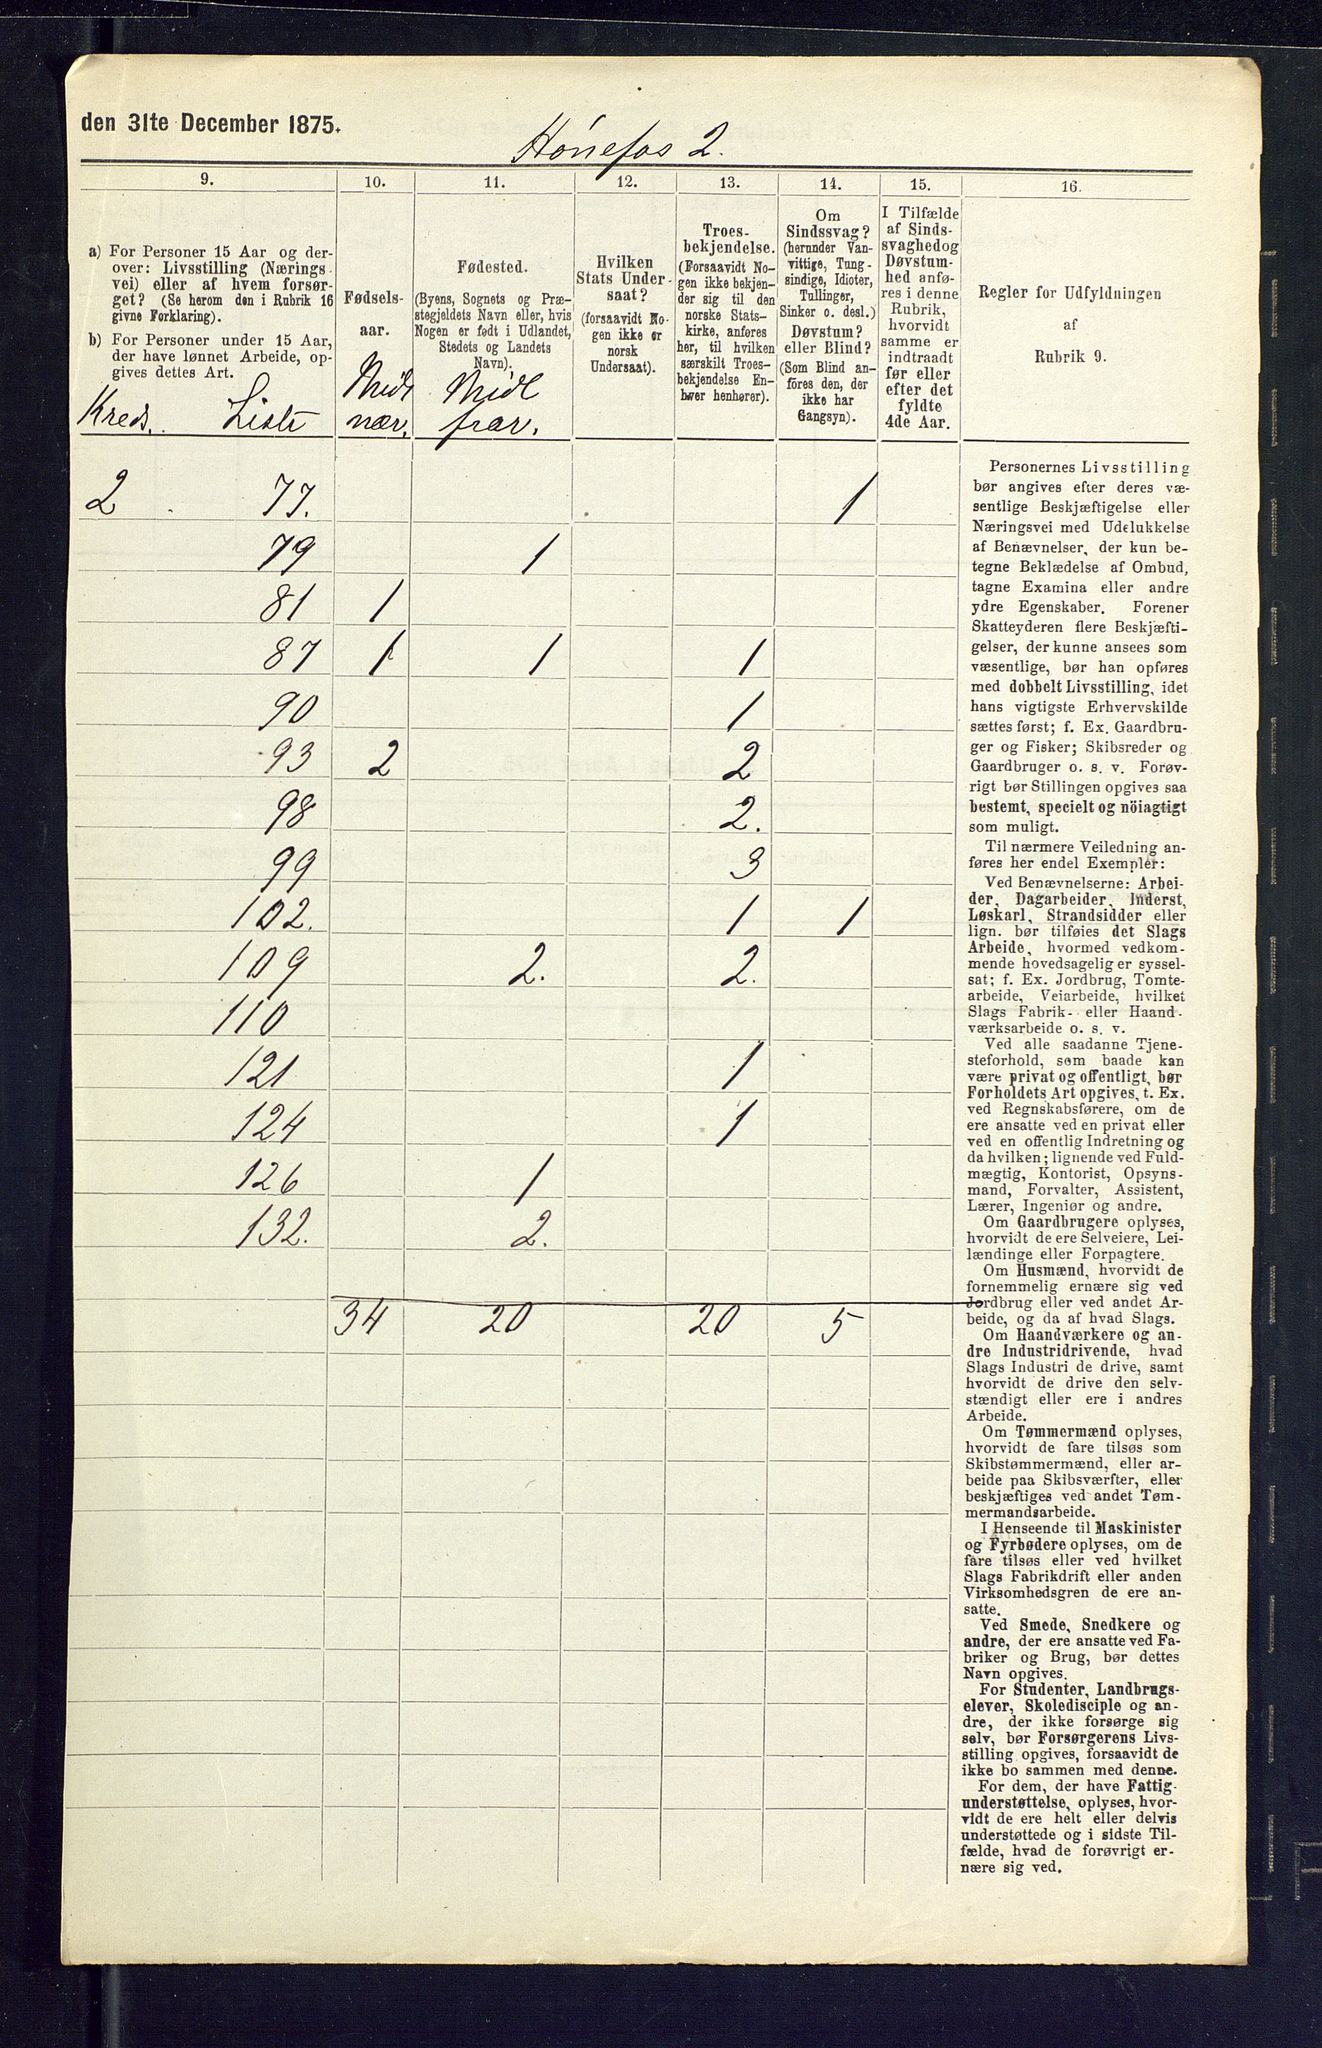 den 31te December 1875.
Hönefos 2.
9. 10. 11. 12. 13. 14. 15. 16.
a) For Personer 15 Aar og der-
over: Livsstilling (Nærings
vei) eller af hvem forsør-
get? (Se herom den i Rubrik 16
givne Forklaring).
b) For Personer under 15 Aar,
der have lønnet Arbeide, op-
gives dettes Art.
Kreds. Liste
Fødsels-
aar.
Midl
nær.
Fødested.
(Byens, Sognets og Præ-
stegjeldets Navn eller, hvis
Nogen er født i Udlandet,
Stedets og Landets
Navn).
Midl
frav.
Hvilken
Stats Under-
saat?
(forsaavidt No-
gen ikke er
norsk
Undersaat).
Troes-
bekjendelse.
(Forsaavidt No-
gen ikke bekjen-
der sig til den
norske Stats-
kirke, anføres
her, til hvilken
særskilt Troes-
bekjendelse En-
hver henhører).
Om
Sindssvag?
(herunder Van-
vittige, Tung-
sindige, Idioter,
Tullinger,
Sinker o. desl.)
Døvstum?
eller Blind?
(Som Blind an-
föres den, der
ikke har
Gangsyn).
I Tilfælde
af Sinds-
svaghedog
Døvstum-
hed anfø-
res i denne
Rubrik,
hvorvidt
samme er
indtraadt
før eller
efter det
fyldte
4de Aar.
Regler for Udfyldningen
af
Rubrik 9.
2 77. 1
79 1
81 1
87 1 1 1
90 1
93 2 2
98 2.
99 3
102. 1 1
109 2. 2.
110
121 1
124 1
126 1
132. 2.
34 20 20 5
Personernes Livsstilling
bør angives efter deres væ-
sentlige Beskjæftigelse eller
Næringsvei med Udelukkelse
af Benævnelser, der kun be-
tegne Beklædelse af Ombud,
tagne Examina eller andre
ydre Egenskaber. Forener
Skatteyderen flere Beskjæfti-
gelser, der kunne ansees som
væsentlige, bør han opføres
med dobbelt Livsstilling, idet
hans vigtigste Erhvervskilde
sættes først; f. Ex. Gaardbru-
ger og Fisker; Skibsreder og
Gaardbruger o. s. v. Forøv-
rigt bør Stillingen opgives saa
bestemt, specielt og nöiagtigt
som muligt.
Til nærmere Veiledning an-
føres her endel Exempler:
Ved Benævnelserne: Arbei-
der, Dagarbeider, Inderst,
Løskarl, Strandsidder eller
lign. bør tilføies det Slags
Arbeide, hvormed vedkom-
mende hovedsagelig er syssel-
sat; f. Ex. Jordbrug, Tomte-
arbeide, Veiarbeide, hvilket
Slags Fabrik- eller Haand-
værksarbeide o. s. v.
Ved alle saadanne Tjene-
steforhold, som baade kan
være privat og offentligt, bør
Forholdets Art opgives, t. Ex.
ved Regnskabsførere, om de
ere ansatte ved en privat eller
ved en offentlig Indretning og
da hvilken; lignende ved Fuld-
mægtig, Kontorist, Opsyns-
mand, Forvalter, Assistent,
Lærer, Ingeniør og andre.
Om Gaardbrugere oplyses,
hvorvidt de ere Selveiere, Lei-
lændinge eller Forpagtere.
Om Husmænd, hvorvidt de
fornemmelig ernære sig ved
Jordbrug eller ved andet Ar-
beide, og da af hvad Slags.
Om Haandværkere og an-
dre Industridrivende, hvad
Slags Industri de drive, samt
hvorvidt de drive den selv-
stændigt eller ere i andres
Arbeide.
Om Tømmermænd oplyses,
hvorvidt de fare tilsøs som
Skibstømmermænd, eller ar-
beide paa Skibsværfter, eller
beskjæftiges ved andet Tøm-
mermandsarbeide.
I Henseende til Maskinister
og Fyrbødere oplyses, om de
fare tilsøs eller ved hvilket
Slags Fabrikdrift eller anden
Virksomhedsgren de ere an-
satte.
Ved Smede, Snedkere og
andre, der ere ansatte ved Fa-
briker og Brug, bør dettes
Navn opgives.
For Studenter, Landbrugs-
elever, Skoledisciple og an-
dre, der ikke forsørge sig
selv, bør Forsørgerens Livs-
stilling opgives, forsaavidt de
ikke bo sammen med denne.
For dem, der have Fattig-
understøttelse, oplyses, hvor-
vidt de ere helt eller delvis
understøttede og i sidste Til-
fælde, hvad de forøvrigt er-
nære sig ved.